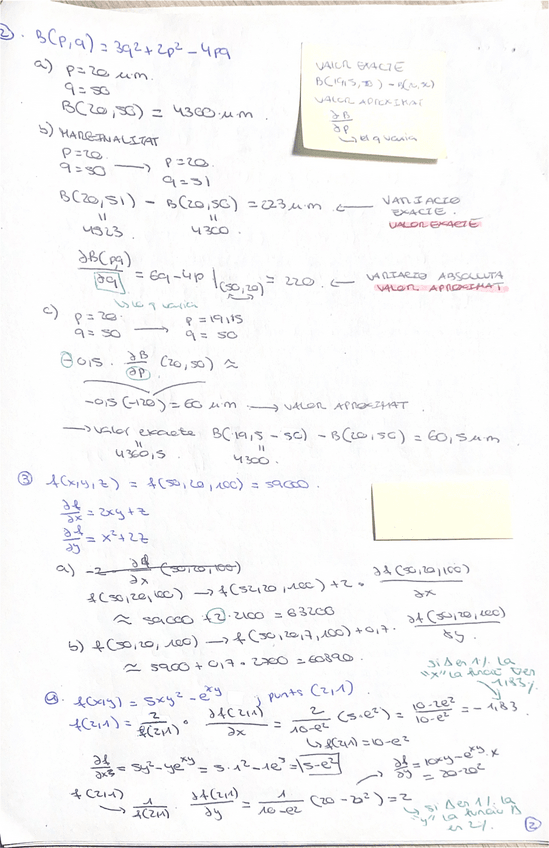 2). B(p,q) = 3q² + 2p² - 4pq
a) p = 20 u.m.
q = 50
B(20,50) = 4300 u.m.
VALOR EXACTE
B(19,5,50) - B(20,50)
VALOR APROXIMAT
∂B
∂p
↳ el q varia
b) MARGINALITAT
p = 20 → p = 20
q = 50 q = 51
B(20,51) - B(20,50) = 223 u.m ← VARIACIÓ EXACTE.
4523 4300 VALOR EXACTE
∂B(pq)/∂q = 6q - 4p |(50,20) = 220. ← VARIACIÓ ABSOLUTA
VALOR APROXIMAT
↳ lo q varia
c) p = 20 → p = 19,5
q = 50 q = 50
-0,5 · ∂B/∂p (20,50) ≈
-0,5(-120) = 60 u.m → VALOR APROXIMAT.
→ valor exacte B(19,5-50) - B(20,50) = 60,5 u.m
4360,5. 4300.
③ f(x,y,z) = f(50,20,100) = 59000.
∂f/∂x = 2xy + z
∂f/∂y = x² + 2z
a) -2 ∂f/∂x (50,20,100)
f(50,20,100) → f(52,20,100) + 2 · ∂f(50,20,100)/∂x
≈ 59000 + 2 · 2100 = 63200
b) f(50,20,100) → f(50,20,7,100) + 0,7 · ∂f(50,20,100)/∂y.
≈ 5900 + 0,7 · 2700 = 60890.
si Δ en 1% la
"x" la funció
1,83%
4. f(x,y) = 5xy² - e^xy } punts (2,1)
f(2,1) = 2/f(2,1) · ∂f(2,1)/∂x = 2/(10-e²) (5-e²) = (10-2e²)/(10-e²) = -1,83.
↳ f(2,1) = 10-e²
∂f/∂x = 5y² - ye^xy = 5·1² - 1e² = 5-e²
→ ∂f/∂y = 10xy - e^xy · x
= 20-2e²
f(2,1) → 1/f(2,1) · ∂f(2,1)/∂y = 1/(10-e²) (20-2e²) = 2
↳ si Δ en 1% la
"y" la funció Δ
en 2%.
2